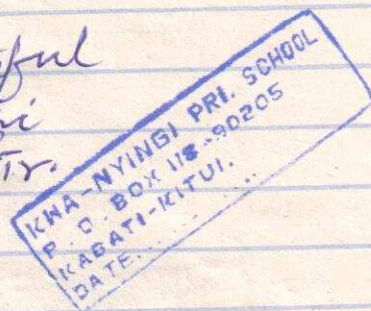 KWA-NYINGI PRI. SCHOOL
P. O. BOX 118-90205
KABATI-KITUI.
DATE..............